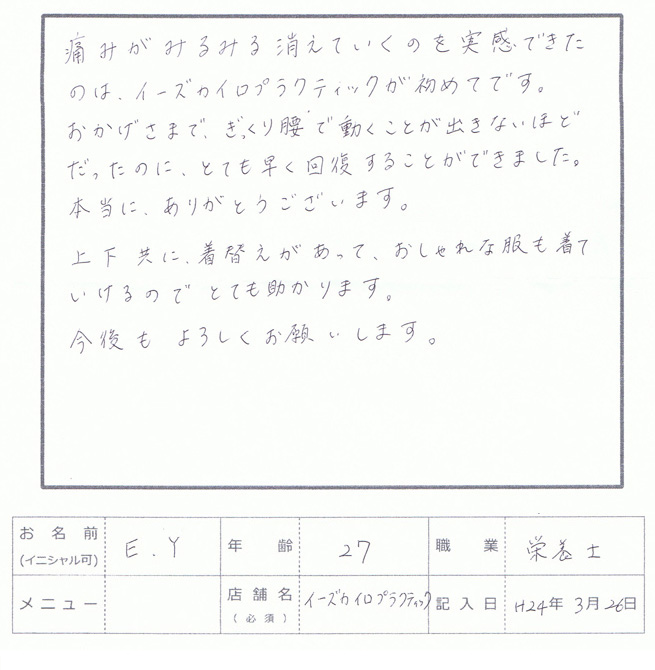 痛みがみるみる消えていくのを実感できた
のは、イーズカイロプラクティックが初めてです。
おかげさまで、ぎっくり腰で動くことが出きないほど
だったのに、とても早く回復することができました。
本当に、ありがとうございます。
上下共に、着替えがあって、おしゃれな服も着て
いけるのでとても助かります。
今後もよろしくお願いします。
お名前(イニシャル可) E.Y 年齢 27 職業 栄養士
メニュー 店舗名(必須) イーズカイロプラクティック 記入日 H24年3月26日